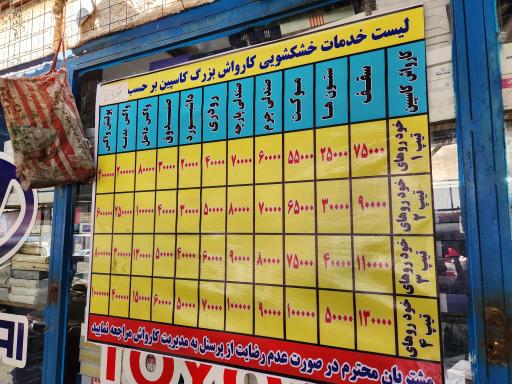 لیست خدمات خشکشویی کارواش بزرگ کاسپین بر حسب
کارواش کاسپین سقف ستون ها موکت صندلی چرم صندلی پارچه رودری داشبورد صندوق واکس داخل واکس بدنه پولیش واکس
خودروهای تیپ ۱ ۷۵۰۰۰ ۲۵۰۰۰ ۵۵۰۰۰ ۶۰۰۰۰ ۷۰۰۰۰ ۴۰۰۰۰ ۲۰۰۰۰ ۳۰۰۰۰ ۸۰۰۰۰ ۲۰۰۰۰۰
خودروهای تیپ ۲ ۹۰۰۰۰ ۳۰۰۰۰ ۶۵۰۰۰ ۷۰۰۰۰ ۸۰۰۰۰ ۵۰۰۰۰ ۳۰۰۰۰ ۴۰۰۰۰ ۱۰۰۰۰۰ ۲۵۰۰۰۰
خودروهای تیپ ۳ ۱۱۰۰۰۰ ۴۰۰۰۰ ۷۵۰۰۰ ۸۰۰۰۰ ۹۰۰۰۰ ۶۰۰۰۰ ۴۰۰۰۰ ۵۰۰۰۰ ۱۳۰۰۰۰ ۳۰۰۰۰۰
خودروهای تیپ ۴ ۱۳۰۰۰۰ ۵۰۰۰۰ ۱۰۰۰۰۰ ۹۰۰۰۰ ۱۰۰۰۰۰ ۷۰۰۰۰ ۵۰۰۰۰ ۶۰۰۰۰ ۱۵۰۰۰۰ ۴۰۰۰۰۰
مشتریان محترم در صورت عدم رضایت از پرسنل به مدیریت کارواش مراجعه نمایید